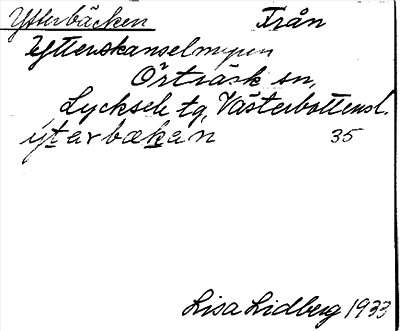 Ytterbäcken Från
Ytterskanselmyren
Örträsk sn,
Lycksele tg, Västerbottensl.
yt ar bækan 35
Lisa Lidberg 1933